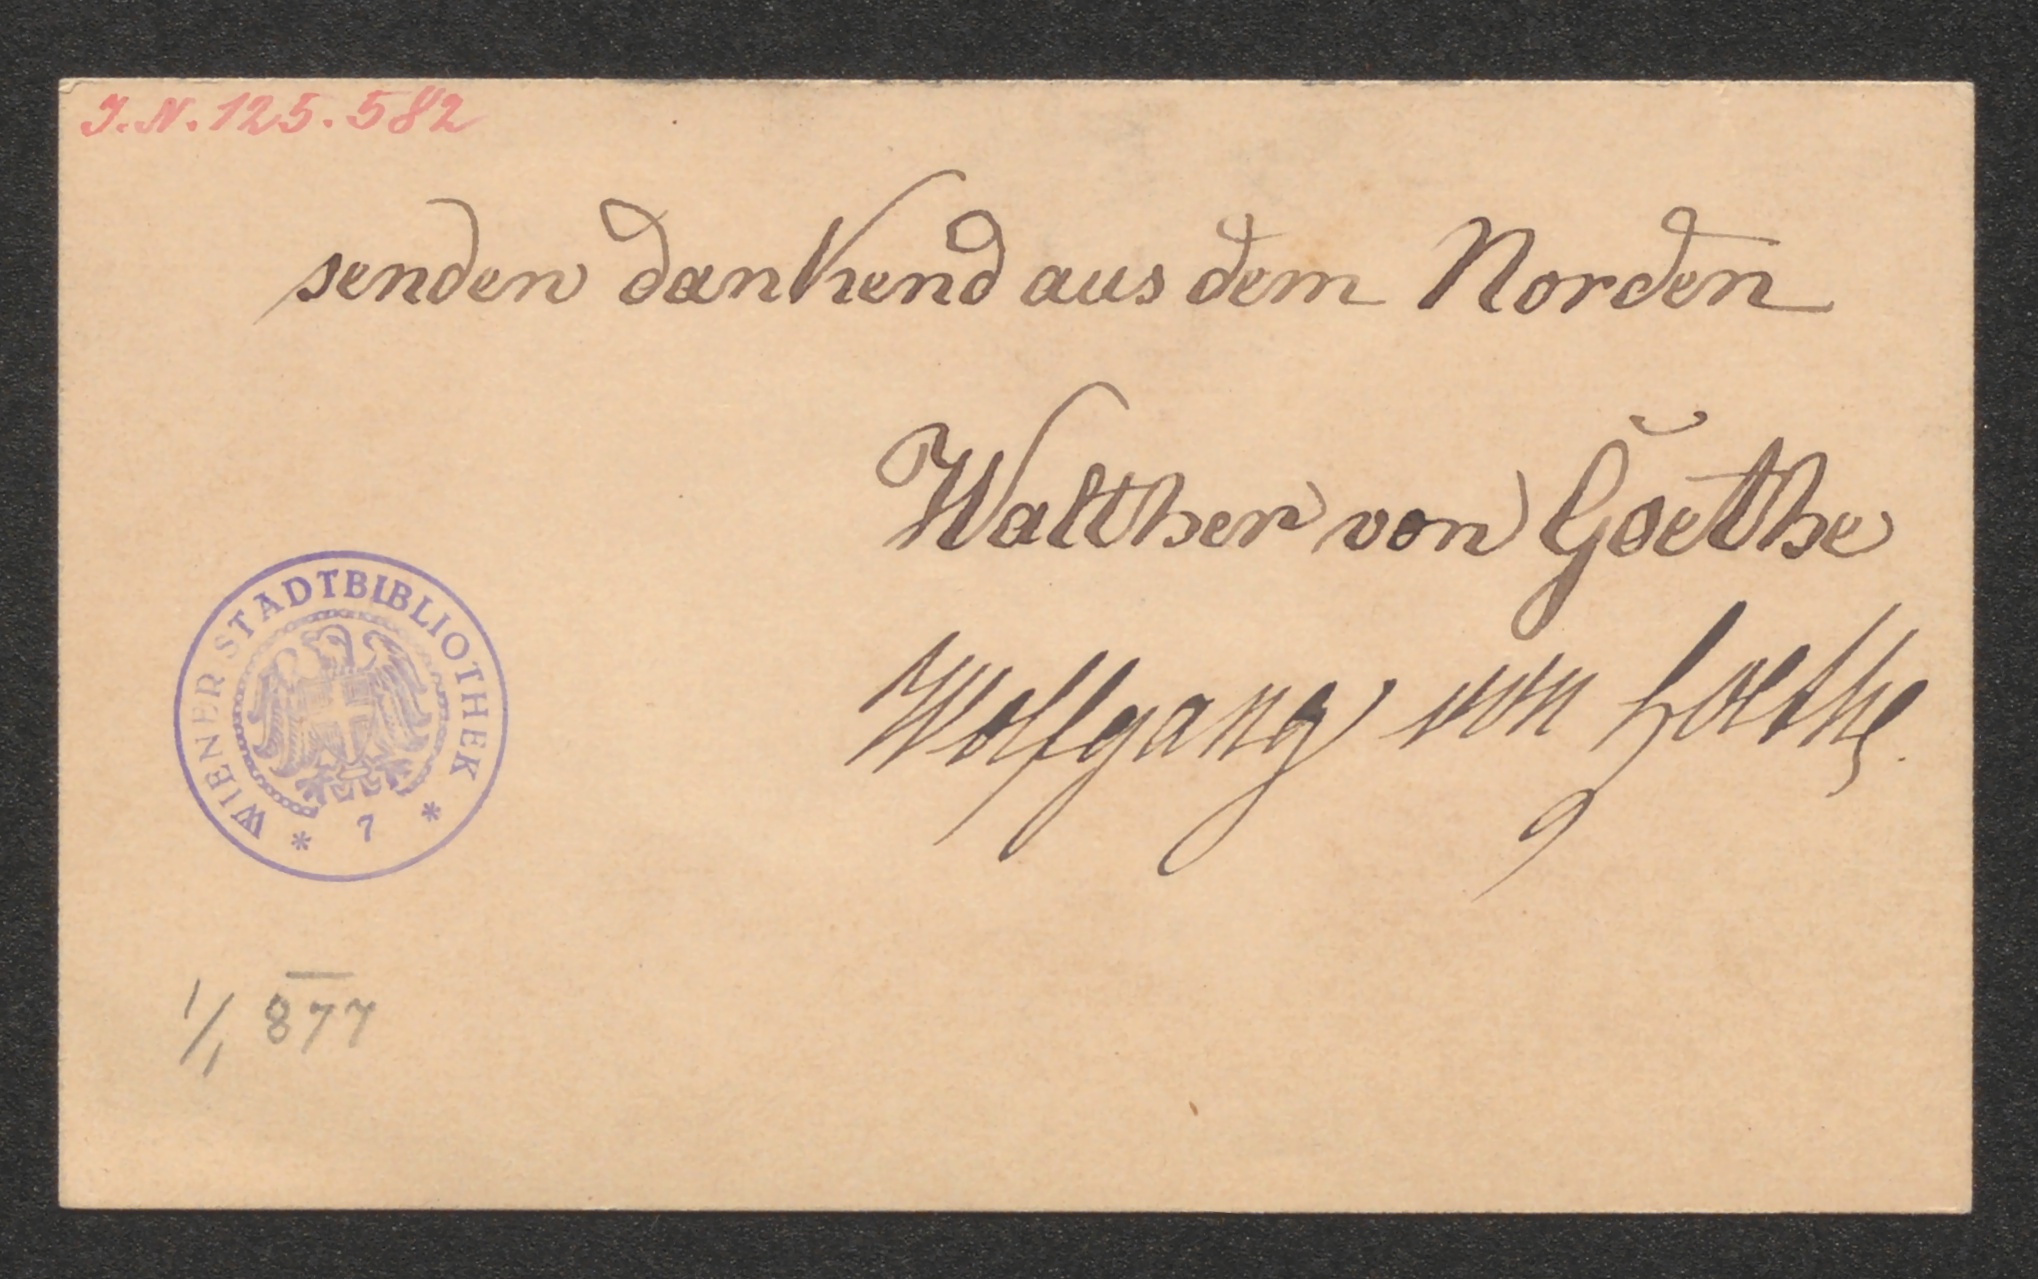 J.N. 125.582
senden dankend aus dem Norden
Walther von Goethe
Wolfgang von Goethe.
WIENER STADTBIBLIOTHEK
* 7 *
1/1 877